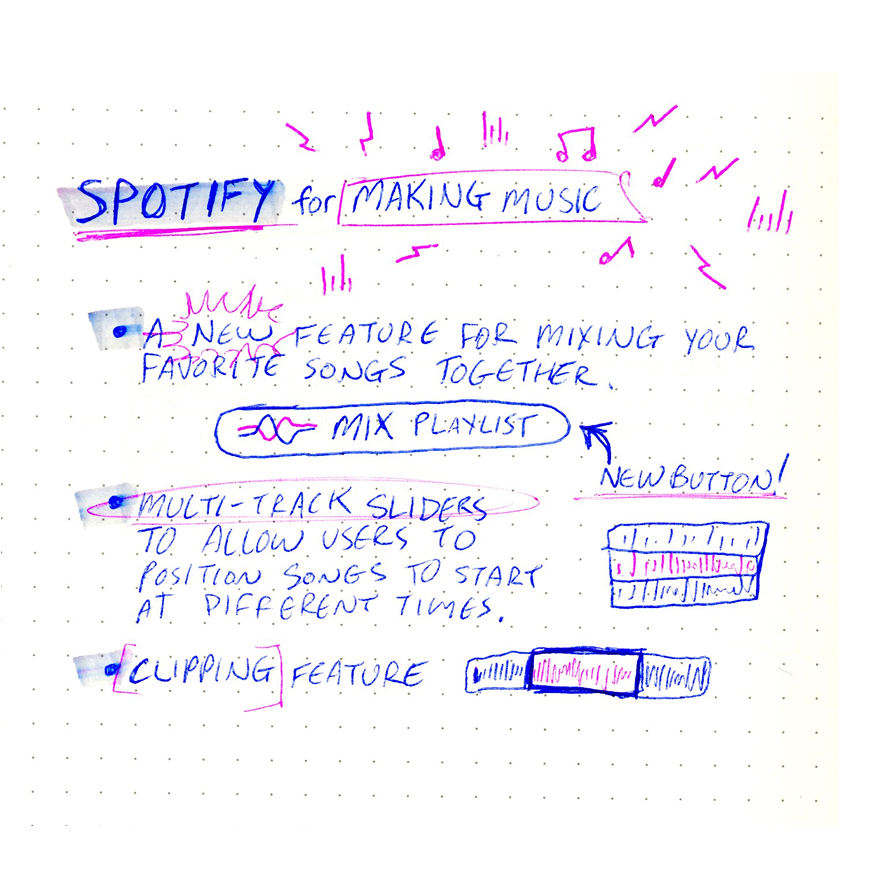 SPOTIFY for MAKING MUSIC
• A NEW FEATURE FOR MIXING YOUR
FAVORITE SONGS TOGETHER.
MIX PLAYLIST
NEW BUTTON!
• MULTI-TRACK SLIDERS
TO ALLOW USERS TO
POSITION SONGS TO START
AT DIFFERENT TIMES.
• [CLIPPING] FEATURE